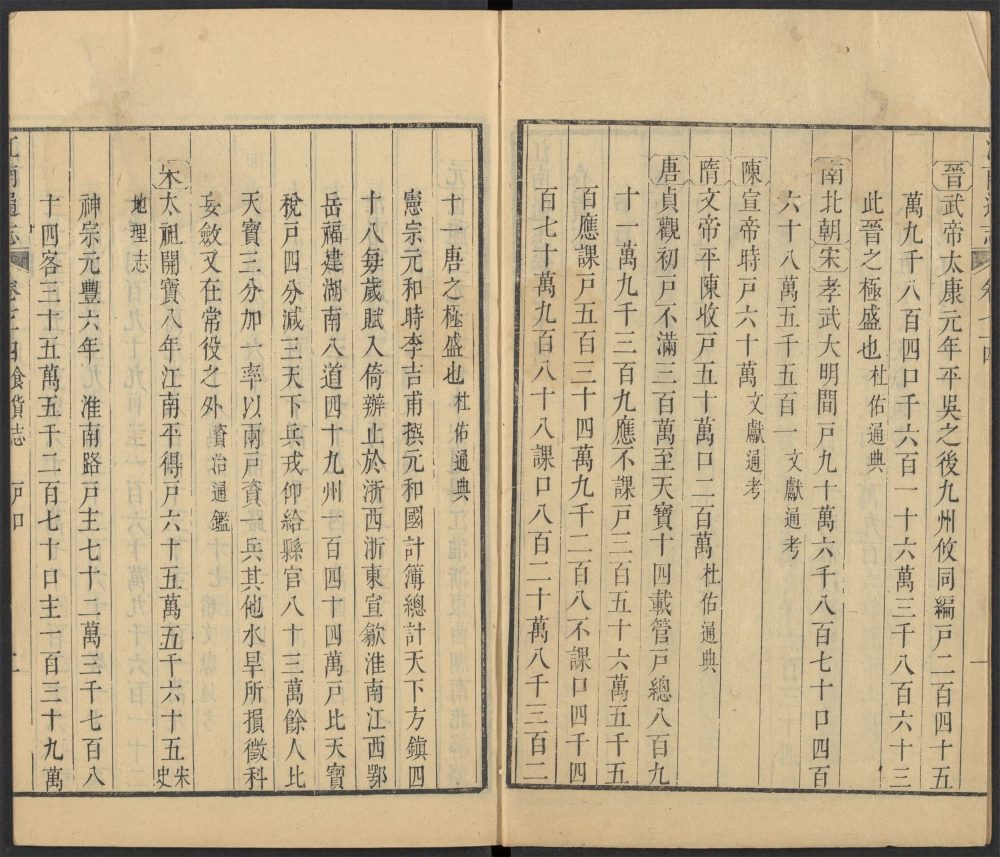 晉武帝太康元年平吳之後九州攸同編戸二百四十五
萬九千八百四口千六百一十六萬三千八百六十三
此晉之極盛也杜佑通典
南北朝宋孝武大明間戸九十萬六千八百七十口四百
六十八萬五千五百一文獻通考
陳宣帝時戸六十萬文獻通考
隋文帝平陳收戸五十萬口二百萬杜佑通典
唐貞觀初戸不滿三百萬至天寶十四載管戸總八百九
十一萬九千三百九應不課戸三百五十六萬五千五
百應課戸五百三十四萬九千二百八不課口四千四
百七十萬九百八十八課口八百二十萬八千三百二
十一唐之極盛也杜佑通典
憲宗元和時李吉甫撰元和國計簿總計天下方鎮四
十八每歲賦入倚辦止於浙西浙東宣歙淮南江西鄂
岳福建湖南八道四十九州百四十四萬戸比天寶
稅戸四分減三天下兵戎仰給縣官八十三萬餘人比
天寶三分加一率以兩戸資一兵其他水旱所損徵科
妄斂又在常役之外資治通鑑
宋太祖開寶八年江南平得戸六十五萬五千六十五宋史
地理志
神宗元豐六年淮南路戸主七十二萬三千七百八
十四客三十五萬五千二百七十口主一百三十九萬
江南通志
食貨志
戸口